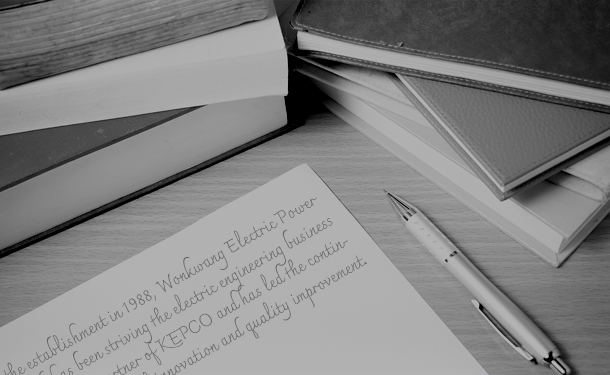 the establishment in 1988, Wonkwang Electric Power
has been striving the electric engineering business
rtner of KEPCO and has led the contin-
innovation and quality improvement.